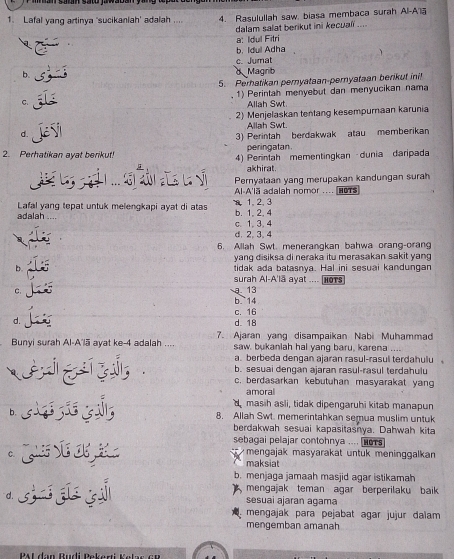 1. Lafal yang artinya 'sucikanlah' adalah ....
a. سَبِّحْ
b. فَسَوّٰى
c. خَلَقَ
d. الْاَعْلَى
2. Perhatikan ayat berikut!
اِلَّا مَا شَاۤءَ اللّٰهُ ۗاِنَّهٗ ... الْجَهْرَ وَمَا يَخْفٰى
Lafal yang tepat untuk melengkapi ayat di atas
adalah ....
a.
b.
c.
d.
Bunyi surah Al-A'lā ayat ke-4 adalah ....
a. وَالَّذِيْٓ اَخْرَجَ الْمَرْعٰى
b. وَالَّذِيْ قَدَّرَ فَهَدٰى
c. سَنُقْرِئُكَ فَلَا تَنْسٰىٓ
d. الَّذِيْ خَلَقَ فَسَوّٰى
4. Rasulullah saw. biasa membaca surah Al-A'lā
dalam salat berikut ini kecuali ....
a. Idul Fitri
b. Idul Adha
c. Jumat
d. Magrib
5. Perhatikan pernyataan-pernyataan berikut ini!
1) Perintah menyebut dan menyucikan nama
Allah Swt.
2) Menjelaskan tentang kesempurnaan karunia
Allah Swt.
3) Perintah berdakwak atau memberikan
peringatan.
4) Perintah mementingkan dunia daripada
akhirat.
Pernyataan yang merupakan kandungan surah
Al-A'lā adalah nomor .... HOTS
a. 1, 2, 3
b. 1, 2, 4
c. 1, 3, 4
d. 2, 3, 4
6. Allah Swt. menerangkan bahwa orang-orang
yang disiksa di neraka itu merasakan sakit yang
tidak ada batasnya. Hal ini sesuai kandungan
surah Al-A'lā ayat .... HOTS
a. 13
b. 14
c. 16
d. 18
7. Ajaran yang disampaikan Nabi Muhammad
saw. bukanlah hal yang baru, karena ....
a. berbeda dengan ajaran rasul-rasul terdahulu
b. sesuai dengan ajaran rasul-rasul terdahulu
c. berdasarkan kebutuhan masyarakat yang
amoral
d. masih asli, tidak dipengaruhi kitab manapun
8. Allah Swt. memerintahkan semua muslim untuk
berdakwah sesuai kapasitasnya. Dahwah kita
sebagai pelajar contohnya .... HOTS
mengajak masyarakat untuk meninggalkan
maksiat
b. menjaga jamaah masjid agar istikamah
mengajak teman agar berperilaku baik
sesuai ajaran agama
mengajak para pejabat agar jujur dalam
mengemban amanah
PAI dan Budi Pekerti Kelas